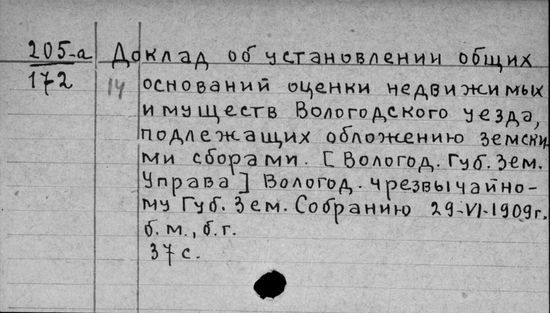 205-а Доклад об установлении общих
172 14 оснований оценки недвижимых
имуществ Вологодского уезда,
подлежащих обложению земски-
ми сборами. [Вологод. Губ. Зем.
Управа] Вологод. чрезвычайно-
му Губ. Зем. Собранию 29-VI-1909г.
б.м., б.г.
37 с.